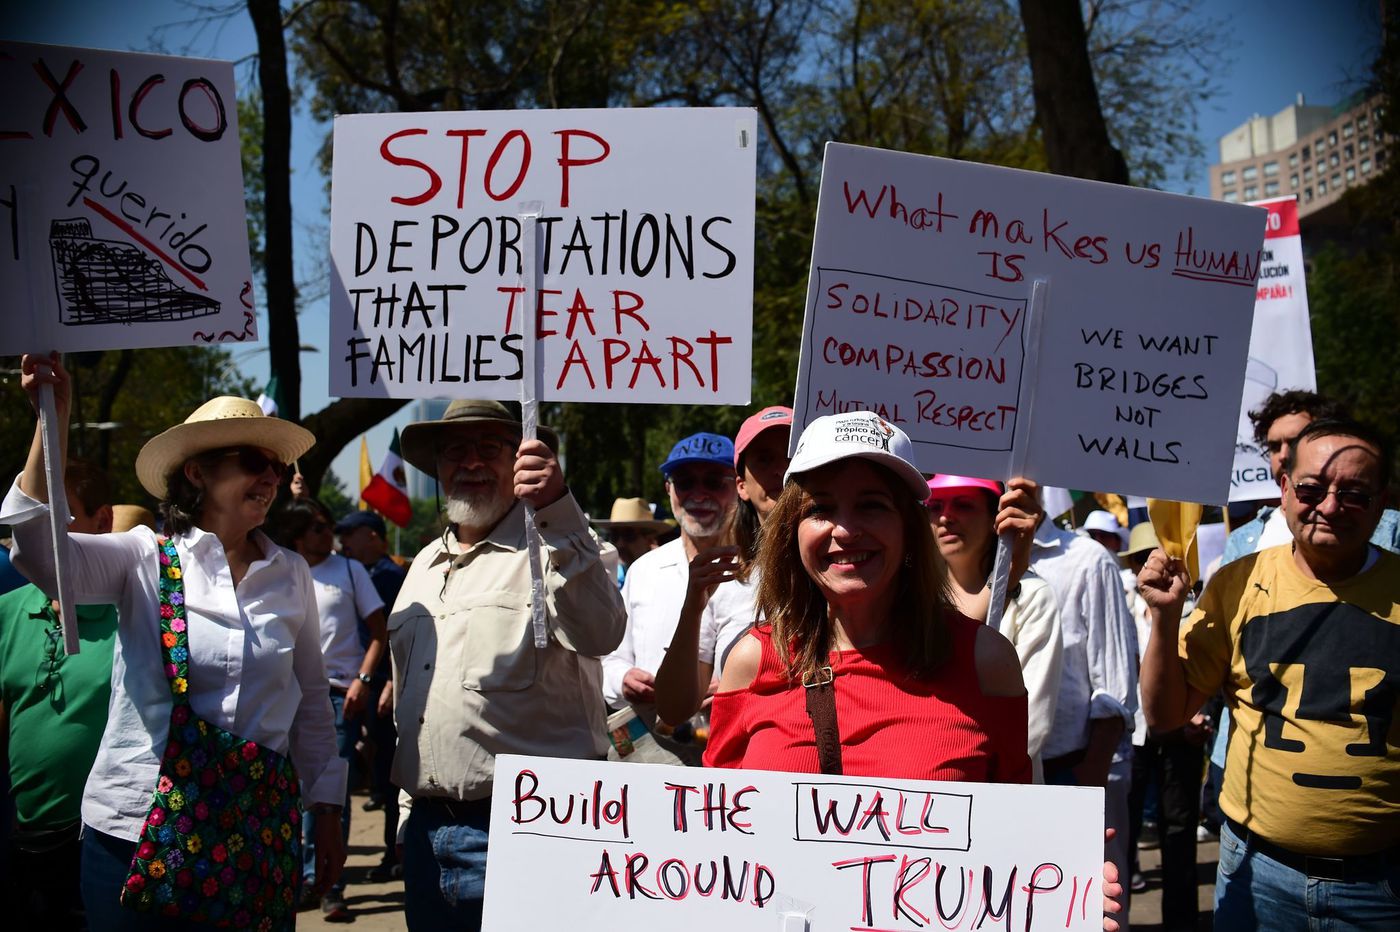 EXICO
Y
querido
STOP
DEPORTATIONS
THAT TEAR
FAMILIES APART
What makes us HUMAN
IS
SOLIDARITY
COMPASSION
MUTUAL RESPECT
WE WANT
BRIDGES
NOT
WALLS.
LUCIÓN
MPAÑA!
NYC
Trópico de
cáncer
Build THE WALL
AROUND TRUMP!!